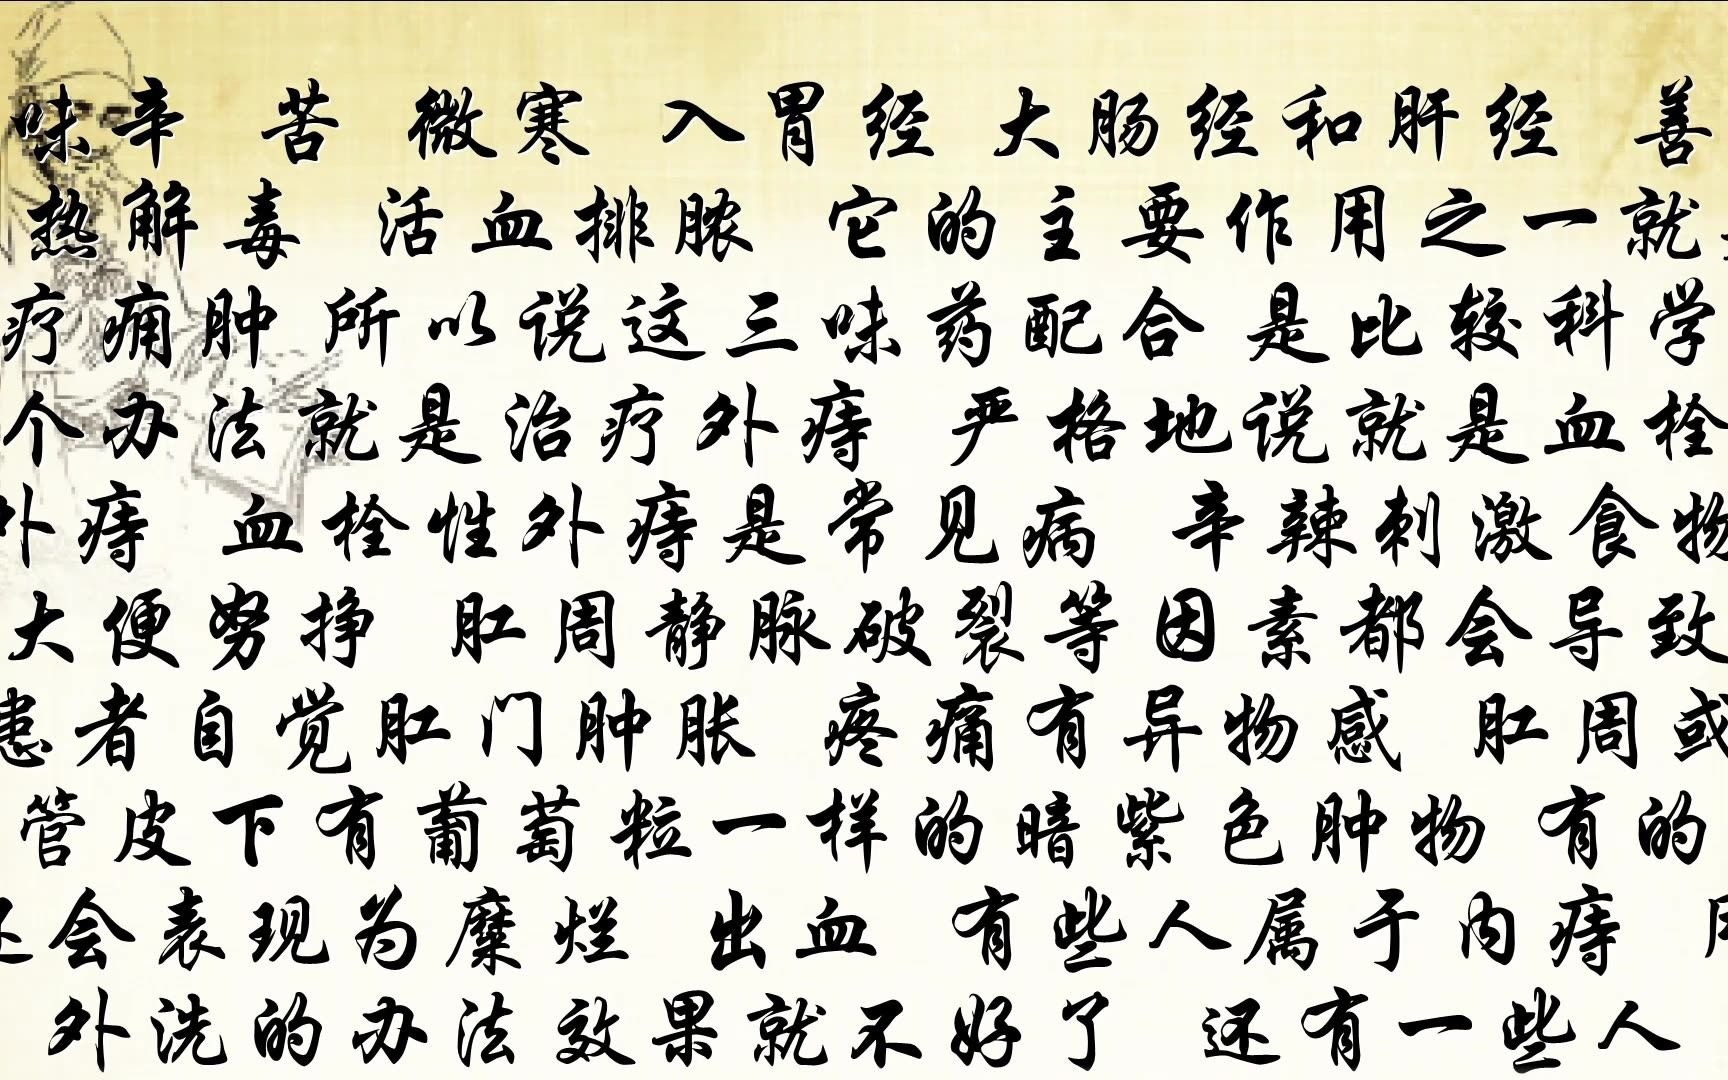 味辛 苦 微寒 入胃经 大肠经和肝经 善
热解毒 活血排脓 它的主要作用之一就
疗痈肿 所以说这三味药配合 是比较科学
个办法就是治疗外痔 严格地说就是血栓
外痔 血栓性外痔是常见病 辛辣刺激食物
大便努挣 肛周静脉破裂等因素都会导致
患者自觉肛门肿胀 疼痛有异物感 肛周或
管皮下有葡萄粒一样的暗紫色肿物 有的
还会表现为糜烂 出血 有些人属于内痔
外洗的办法效果就不好了 还有一些人